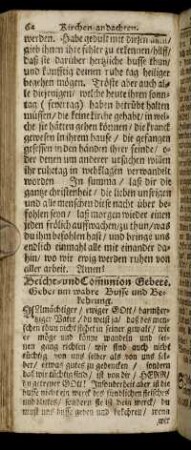 64 Kirchen-andachten.
werden. Habe gedult mit diesen allen/
gieb ihnen ihre fehler zu erkennen/ hilff/
daß sie darüber hertzliche busse thun/
und künfftig deinen ruhe tag heiliger
begehen mögen. Tröste aber auch al-
le diejenigen/ welche heute ihren sonn-
tag (feyertag) haben betrübt halten
müssen/ die keine kirche gehabt/ in wel-
che sie hätten gehen können/ die kranck
gewesen in ihrem hause/ die gefangen
gesessen in den händen ihrer feinde/ o-
der denen um anderer ursachen willen
ihr ruhetag in wehklagen verwandelt
worden. In summa/ laß dir die
gantze christenheit/ die lieben unsrigen
und alle menschen diese nacht über be-
fohlen seyn/ laß morgen wieder einen
jeden frölich auffwachen/ zu thun/ was
du ihm befohlen hast/ und bringe uns
endlich einmahl alle mit einander da-
hin/ wo wir ewig werden ruhen von
aller arbeit. Amen!
Beicht- und Communion Gebete.
Gebet um wahre Busse und Be-
kehrung.
ALlmächtiger/ ewiger GOtt/ barmher-
tziger Vater/ du weist ja/ daß des men-
schen thun nicht stehet in seiner gewalt/ wie
er möge und könne wandeln und sei-
nen gang richten/ wir sind auch nicht
tüchtig von uns selber als von uns sel-
ber/ etwas gutes zu gedencken/ sondern
daß wir tüchtig sind/ ist von dir/ HErr/
du getreuer GOtt! Insonderheit aber ist die
busse nicht ein werck des sündlichen fleisches
und blutes/ sondern sie ist dein werck/ du
must uns busse geben und bekehren/ wenn